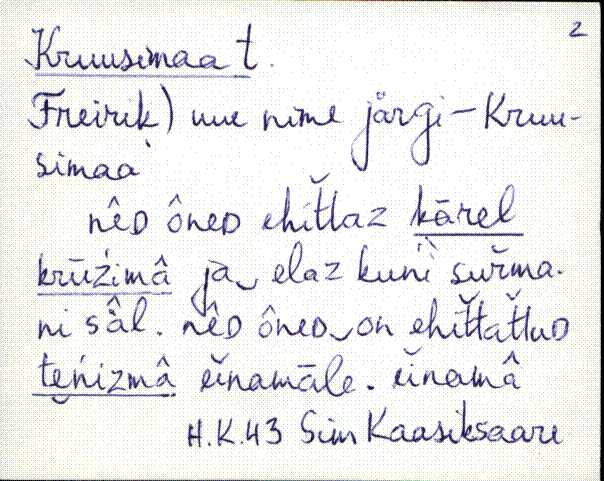 2
Kruusimaa t.
Freirik) uue nime järgi – Kruu-
simaa
nêᴅ ôneᴅ ehit̆taz kārel
krūźimâ ja‿ elaz kuni sur̆ma-
ni sâl. nêᴅ ôneᴅ‿on ehit̆tat̆tuᴅ
teńizmâ ĕinamāle. ĕinamâ
H.K.43 Sim Kaasiksaare